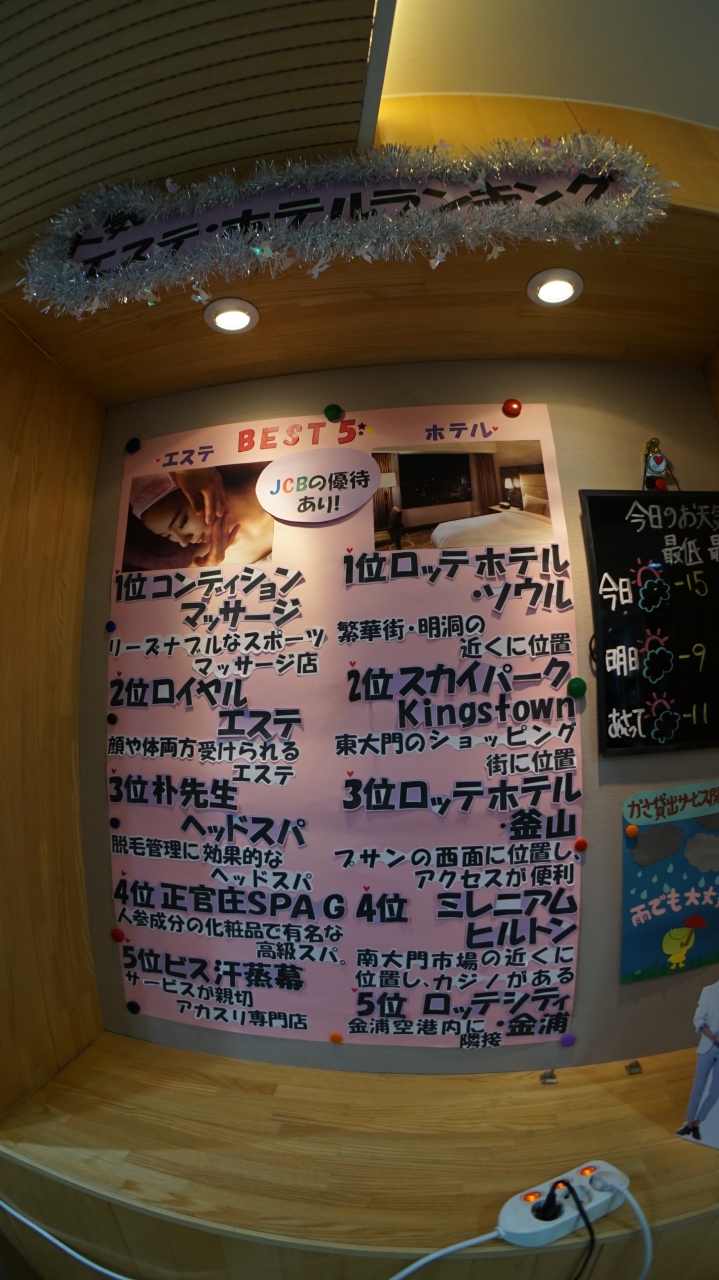 人気
エステ・ホテルランキング
BEST 5
エステ
ホテル
JCBの優待
あり!
1位コンディション
マッサージ
リーズナブルなスポーツ
マッサージ店
2位ロイヤル
エステ
顔や体両方受けられる
エステ
3位朴先生
ヘッドスパ
脱毛管理に効果的な
ヘッドスパ
4位正官庄SPA G
人参成分の化粧品で有名な
高級スパ。
5位ビス汗蒸幕
サービスが親切
アカスリ専門店
1位ロッテホテル
・ソウル
繁華街・明洞の
近くに位置
2位スカイパーク
Kingstown
東大門のショッピング
街に位置
3位ロッテホテル
・釜山
プサンの西面に位置し、
アクセスが便利
4位 ミレニアム
ヒルトン
南大門市場の近くに
位置し、カジノがある
5位 ロッテシティ
・金浦
金浦空港内に
隣接
今日のお天気
最低
今日 -15
明日 -9
あさって -11
かさ貸出サービス
雨でも大丈